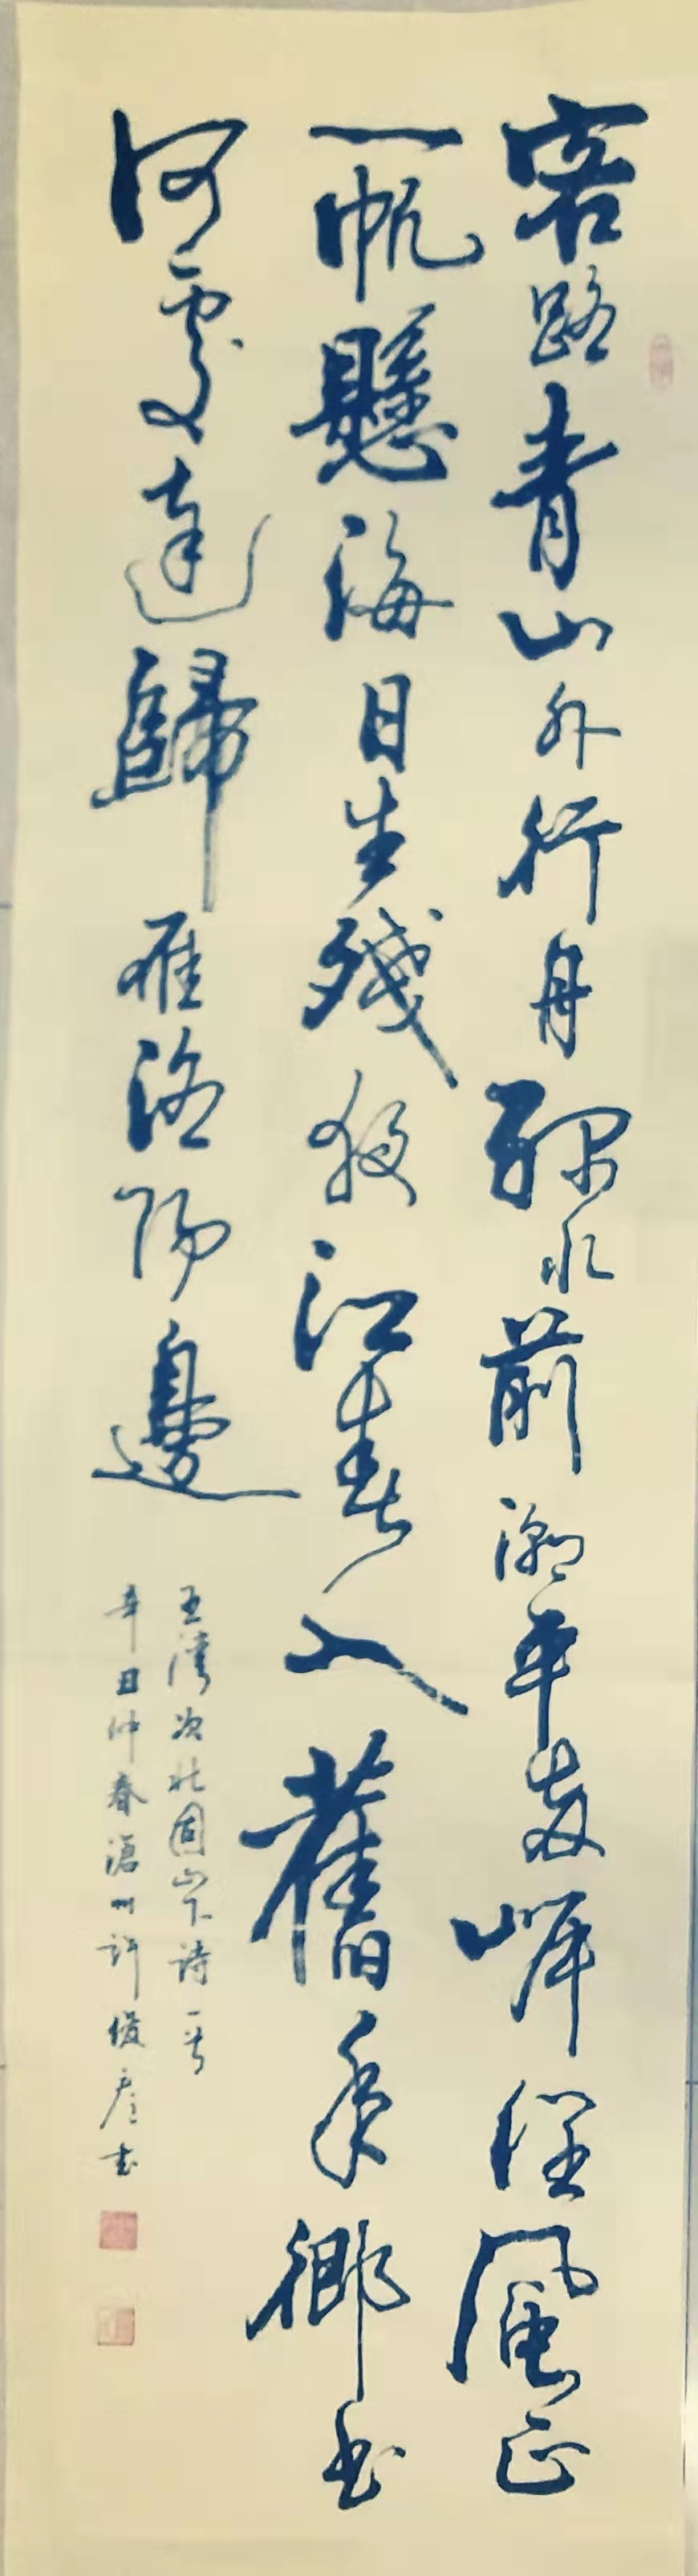 客路青山外行舟綠水前潮平兩岸闊風正
一帆懸海日生殘夜江春入舊年鄉書
何處達歸雁洛陽邊
王灣次北固山下诗一首
辛丑仲春滄州許俊彦书